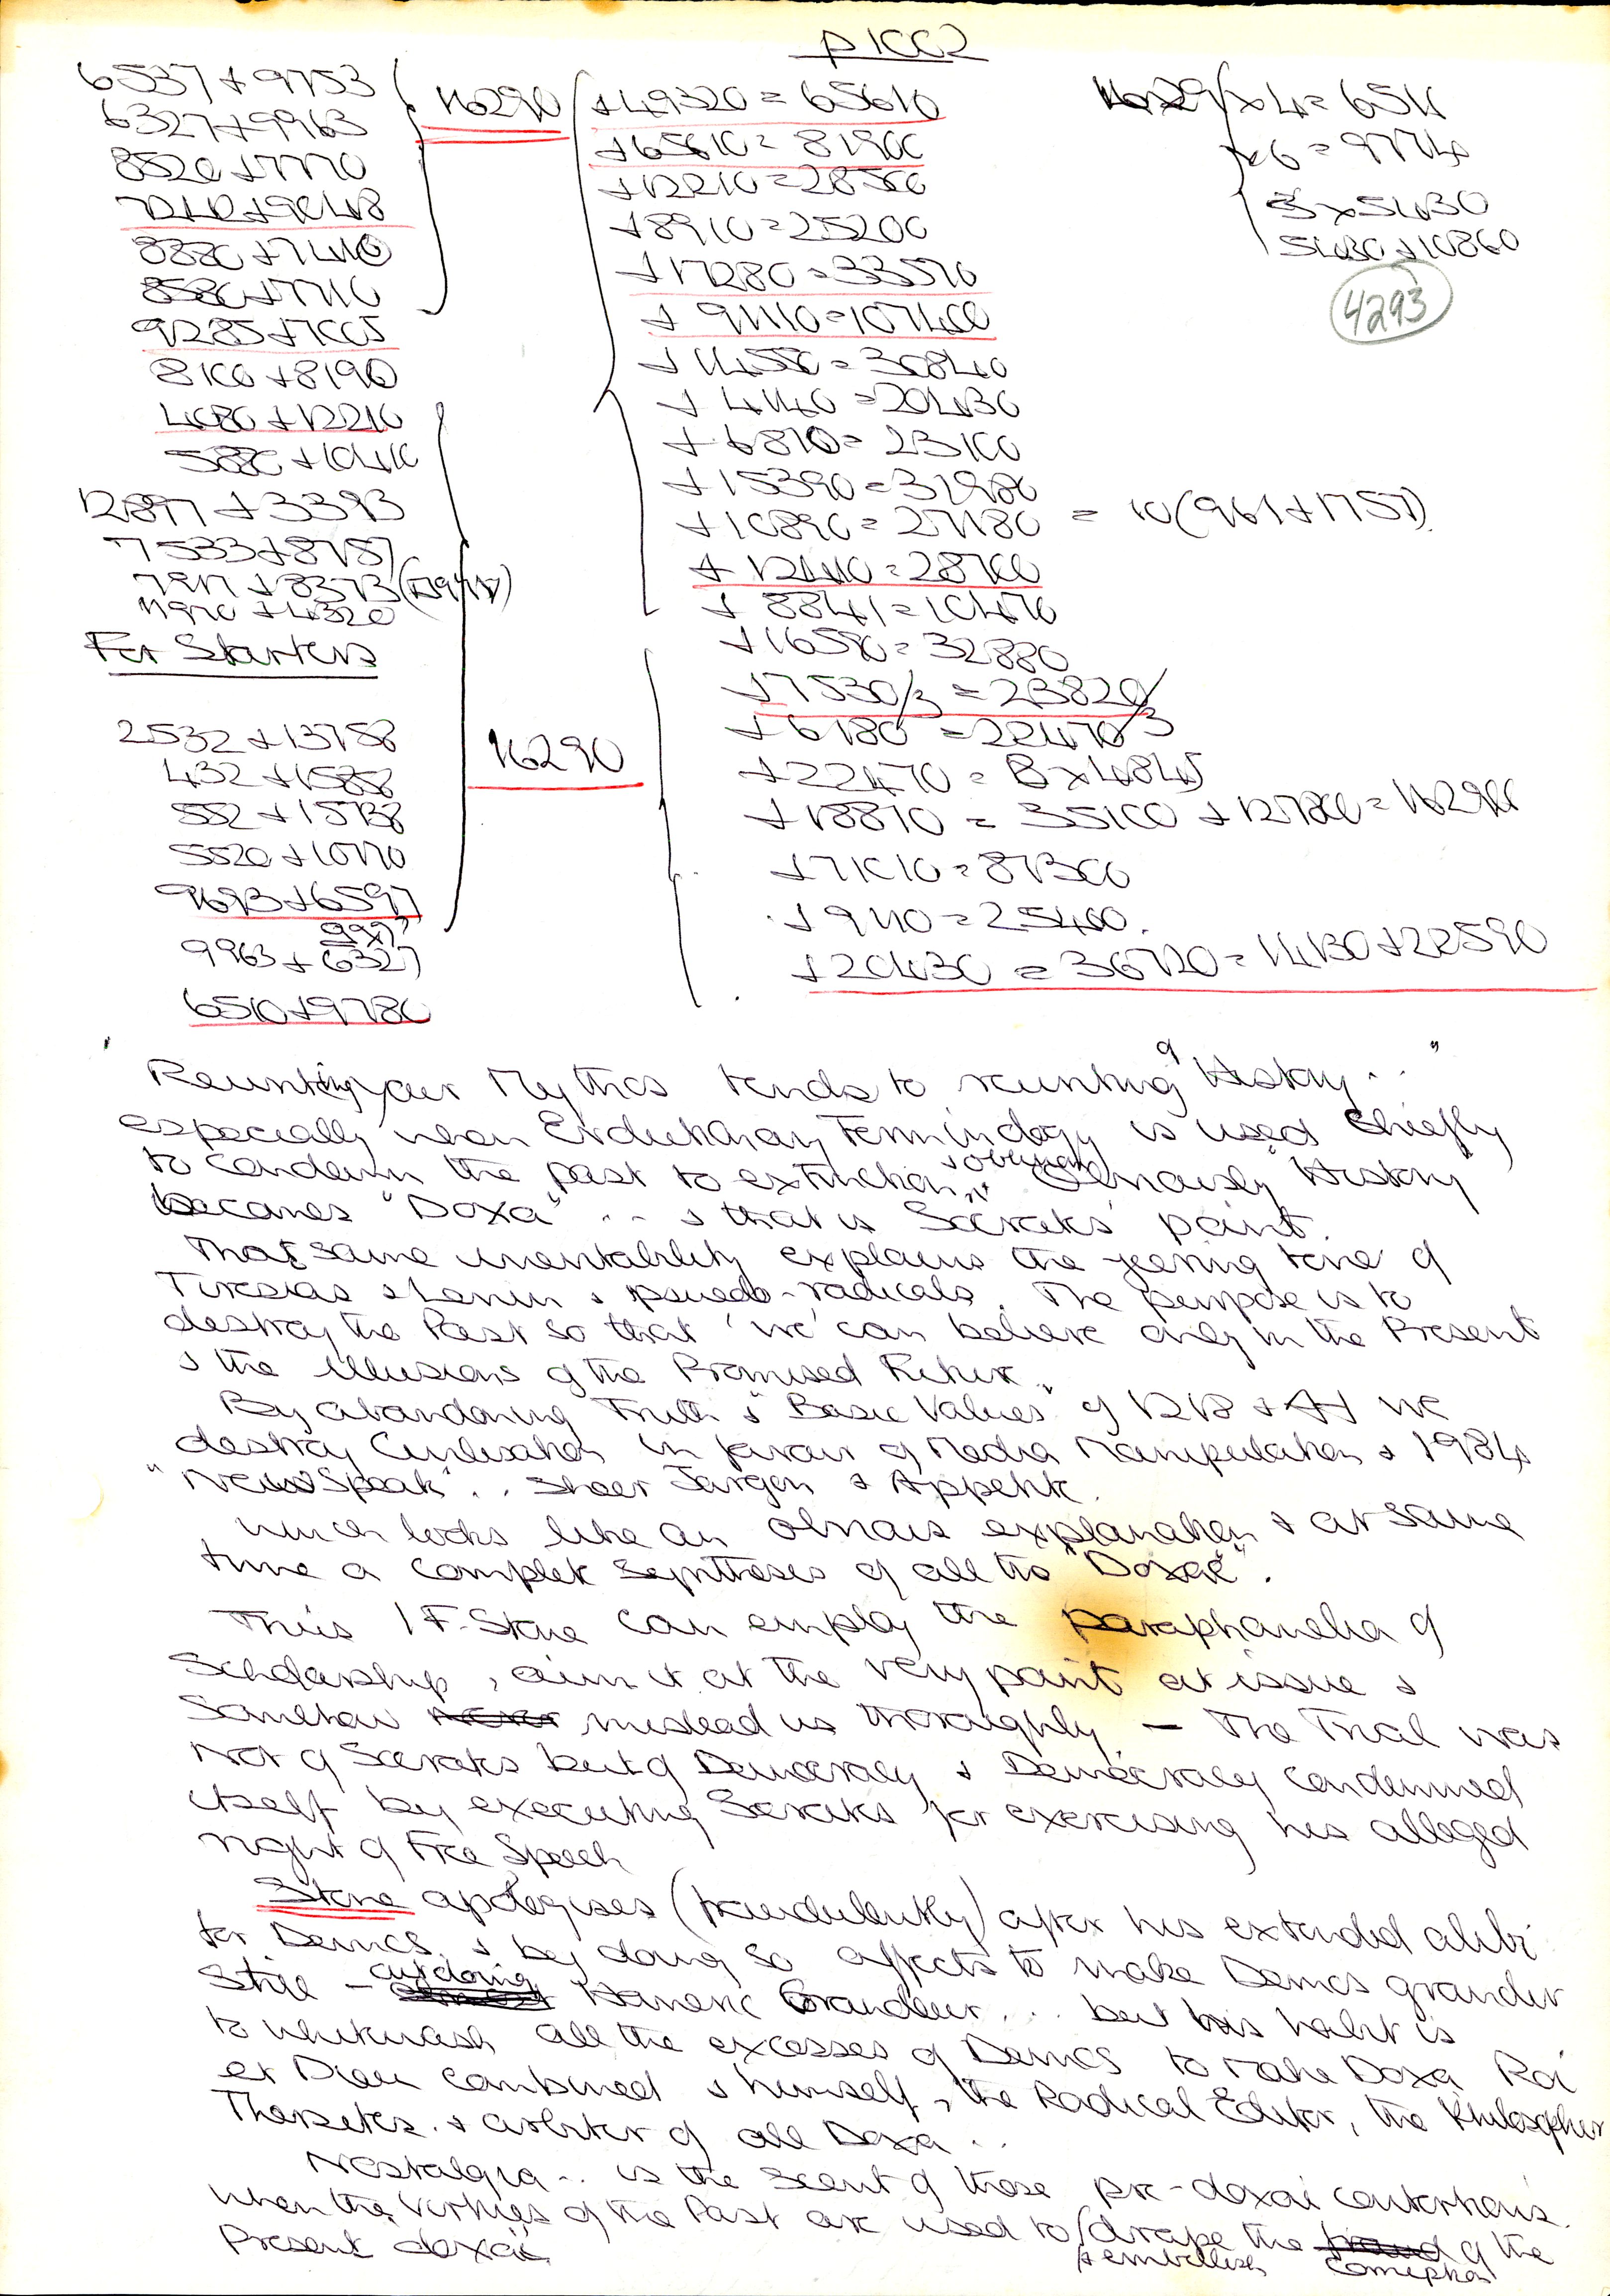 p1002
6537 + 9753
6327 + 9963
8520 + 7770
7242 + 9048
8880 + 7410
8580 + 7710
9285 + 7005
8100 + 8190
4080 + 12210
5880 + 10410
12897 + 3393
7533 + 8757
7917 + 8373
11970 + 4320
For Starters
2532 + 13758
432 + 15858
552 + 15738
5520 + 10770
9693 + 6597
9963 + 6327
6510 + 9780
16290
16290
+ 49320 = 65610
+ 65610 = 81900
+ 12210 = 28500
+ 8910 = 25200
+ 17280 = 33570
+ 91110 = 107400
+ 14550 = 30840
+ 4140 = 20430
+ 6810 = 23100
+ 15390 = 31980
+ 10890 = 27180 = 10(961 + 1757)
+ 12410 = 28700
+ 8841 = 10470
+ 16590 = 32880
+ 7530/3 = 23820/3
+ 6180 = 22470
+ 22470 = 8 x 4845
+ 18810 = 35100 + 12780 =
+ 71010 = 87300
+ 9110 = 25400
+ 20430 = 36720 = 14130 + 22590
1629 x 4 = 6516
x 6 = 9774
3 x 5430
5430 + 10860
4293
your Mythos tends to History ..."
especially when Terminology is used chiefly
to condemn the past to extinction Obviously History
becomes "Doxa" ... & that is Socrates' point.
That same mentality explains the jeering tone of
Tiresias & Lenin & pseudo-radicals. The purpose is to
destroy the Past so that 'we' can believe only in the Present
& the illusions of the Promised Future.
By abandoning Truth & "Basic Values" of we
destroy Civilisation in favour of Media Manipulation & 1984
"NewSpeak" .. sheer Jargon & Appetite.
which looks like an obvious explanation & at same
time a complete synthesis of all the "Doxai".
Thus I F. Stone can employ the paraphanelia of
Scholarship, aim it at the very point at issue &
somehow mislead us thoroughly – The Trial was
Not of Socrates but of Democracy & Democracy condemned
itself by executing Socrates for exercising his alleged
right of Free Speech
Stone apologises (fraudulently) after his extended alibi
for Demos, & by doing so affects to make Demos grander
still – outdoing Homeric Grandeur ... but his habit is
to whitewash all the excesses of Demos to make Doxa Roi
et Dieu combined & himself, the Radical Editor, the Philosopher
Thersites & arbiter of all Doxa ..
Nostalgia .. is the scent of those pre-doxai contortions
when the Virtues of the Past are used to drape the of the
& embellish corruption
Present doxai